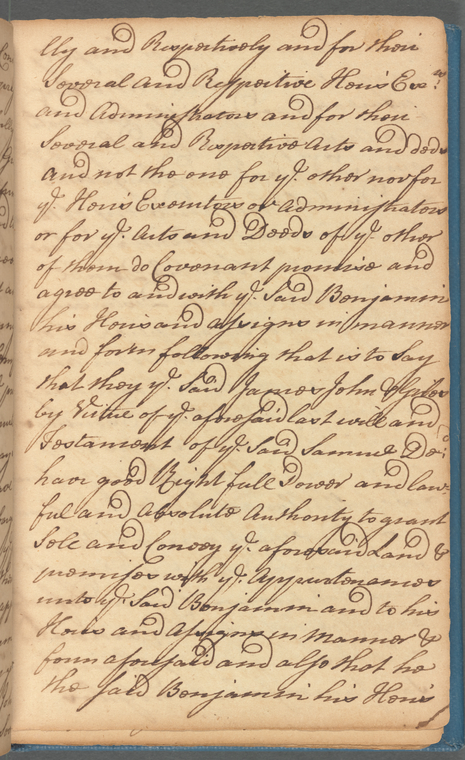 lly and Respectively and for their
Several and Respective Heirs Exrs
and Administrators and for their
Several and Respective Acts and deds
and not the one for ye. other nor for
ye. Heirs Executors or Administrators
or for ye. Acts and Deeds of ye. other
of them do Covenant promise and
agree to and with ye. Said Benjamin
his Heirs and assigns in manner
and form following that is to Say
that they ye. Said James John & Giles
by Virtue of ye. aforesaid last will and
Testament of ye. Said Samuel Decd
have good Right full Power and law-
ful and Absolute Authority to grant
Sele and Convey ye. aforesaid Land &
premises with ye. Appurtenances
unto ye. Said Benjamin and to his
Heirs and Assigns in Manner &
form aforesaid and also that he
the said Benjamin his Heirs